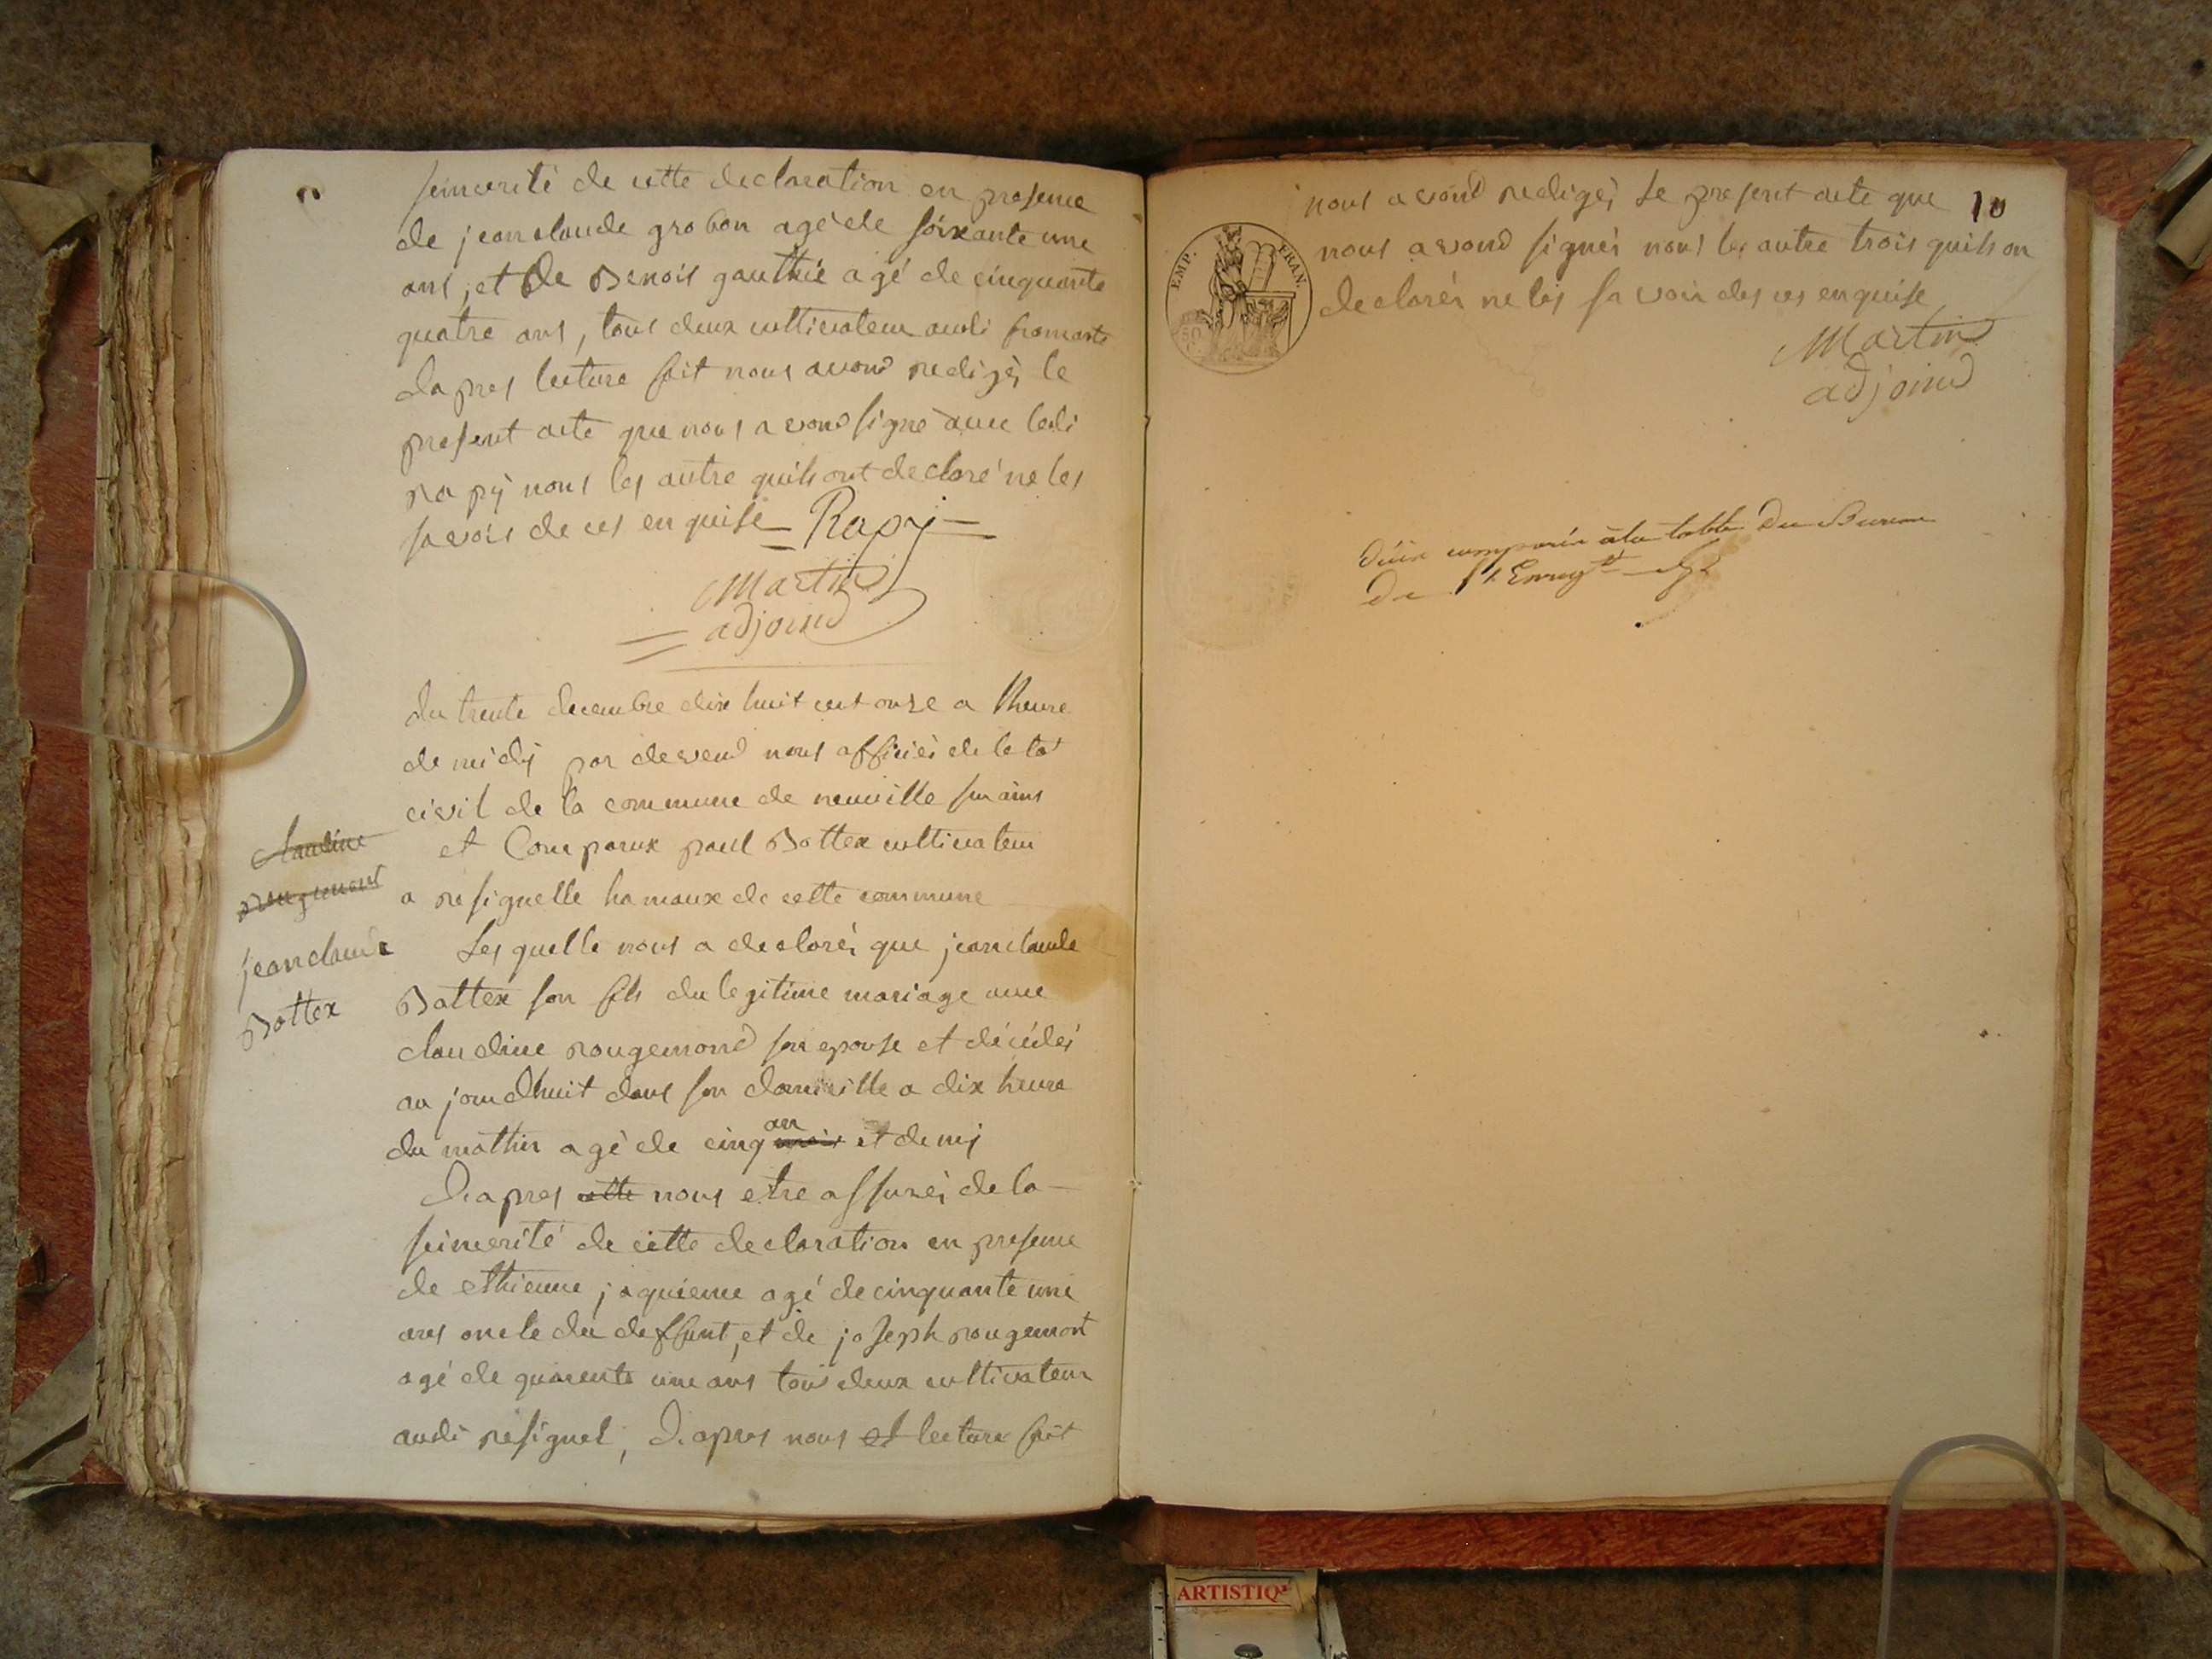 sincerité de cette declaration en presence
de jean claude grobon agé de soixante une
ans, et de Benois gauthié agé de cinquante
quatre ans, tous deux cultivateur audi fromente
dapres lecture fait nous avond redigéi le
present acte que nous avond signé avec ledi
Rapÿ nous les autre quils ont declaré ne les
savoir de ces enquise Rapÿ
Martin
adjoind
du trente decembre dix huit cent onze a lheure
de midÿ par devend nous officiéi de leta
civil de la commune de neuville sur ains
et Comparux paul Bottex cultivateur
a resignelle hamaux de cette commune
Les quelle nous a declaréi que jean claude
Bottex son fils du legitime mariage avec
claudine rougemond son epouse et décédéi
au jourdhuit dans son domicille a dix heure
du mathin agé de cinq mois an et demj
D'apres cette nous etre assuréi de la
sincerité de cette declaration en presence
de ethienne jaquieme agé de cinquante une
ans oncle du deffunt, et de joseph rougemont
agé de quarente une ans tous deux cultivateur
audi resignel, D'apres nous et lecture fait
claudine
rougemont
jean claude
Bottex
10
nous avond redigéi Le present acte que
nous avond signéi nous les autre trois quils on
declaréi ne les savoir des ces enquise
Martin
adjoind
EMP. FRAN.
50
à la table Du Bureau
De l'Enregt
ARTISTIQ